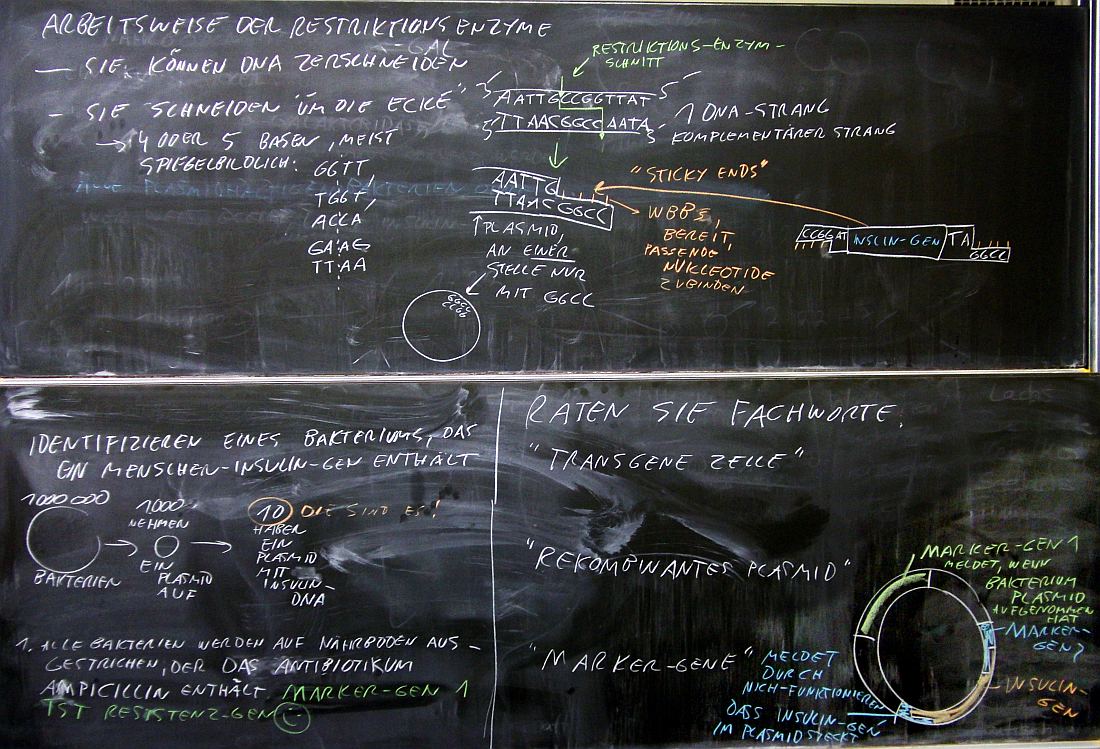 ARBEITSWEISE DER RESTRIKTIONSENZYME
— SIE KÖNNEN DNA ZERSCHNEIDEN
- SIE "SCHNEIDEN ÜM DIE ECKE"
→ 4 ODER 5 BASEN, MEIST
SPIEGELBILDLICH:
GGTT,
TGGT,
ACCA
GAAG
TTAA
RESTRIKTIONS-ENZYM-
SCHNITT
AATTGCCGGTTAT
TTAACGGCCAATA
1 DNA-STRANG
KOMPLEMENTÄRER STRANG
AATTG
TTAACGGCC
"STICKY ENDS"
PLASMID,
AN EINER
STELLE NUR
MIT GGCC
GGCC
CCGG
WBBS,
BEREIT,
PASSENDE
NUKLEOTIDE
ZU BINDEN
CCGGAT INSLIN-GEN TA
GGCC
IDENTIFIZIEREN EINES BAKTERIUMS, DAS
EIN MENSCHEN-INSULIN-GEN ENTHÄLT
1000000
BAKTERIEN
1000
NEHMEN
EIN
PLASMID
AUF
10 DIE SIND ES!
HABEN
EIN
PLASMID
MIT
INSULIN-
DNA
1. ALLE BAKTERIEN WERDEN AUF NÄHRBODEN AUS-
GESTRICHEN, DER DAS ANTIBIOTIKUM
AMPICILLIN ENTHÄLT. MARKER-GEN 1
IST RESISTENZ-GEN
RATEN SIE FACHWORTE:
"TRANSGENE ZELLE"
"REKOMBINANTES PLASMID"
"MARKER-GENE"
MARKER-GEN 1
MELDET, WENN
BAKTERIUM
PLASMID
AUFGENOMMEN
HAT
MARKER-
GEN 2
INSULIN-
GEN
MELDET
DURCH
NICH-FUNKTIONIEREN
DASS INSULIN-GEN
IM PLASMID STECKT